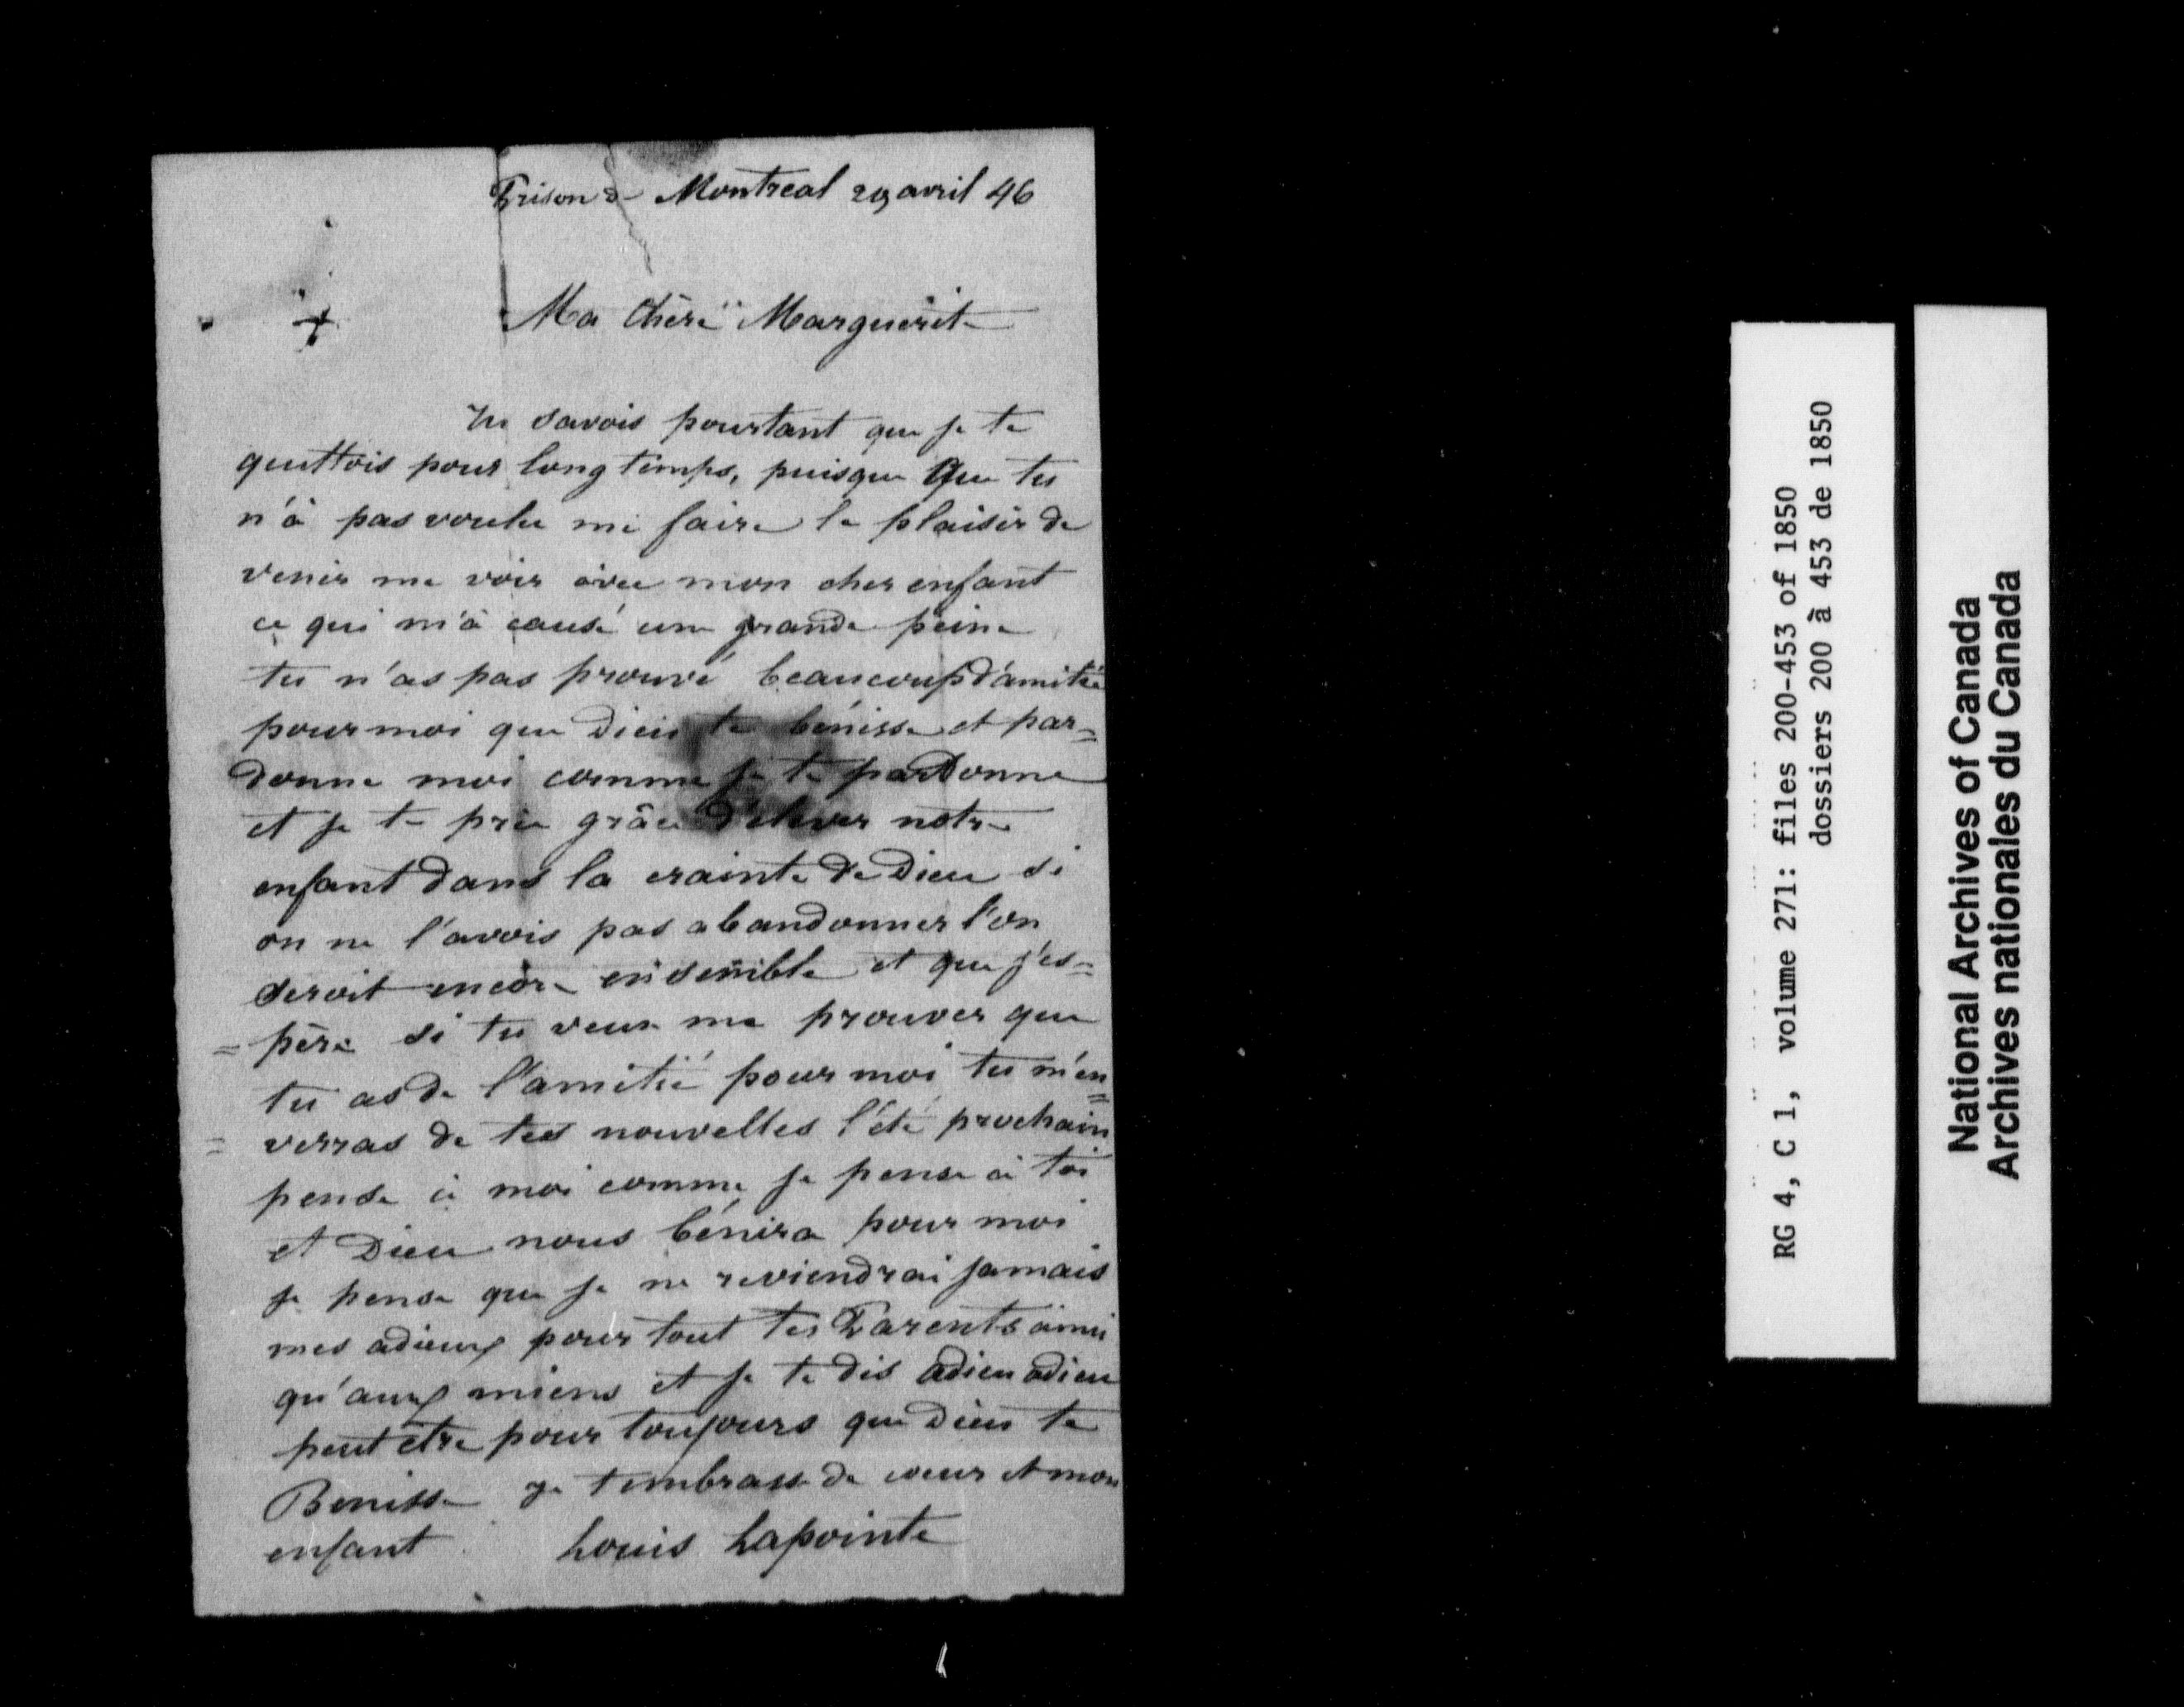 Prison de Montreal 29 avril 46
+
Ma Chère Marguerite
Tu savois pourtant que je te
quittois pour long temps, puisque que tu
n'à pas voulu me faire le plaisir de
venir me voir avec mon cher enfant
ce qui m'à causé une grande peine
tu n'as pas prouvé beaucoup d'amitié
pour moi que Dieu te bénisse et par=
donne moi comme je te pardonne
et je te prie grâce d'élever notre
enfant dans la crainte de Dieu si
on ne l'avois pas abandonner l'on
seroit encore ensemble et que j'es=
=père si tu veux me prouver que
tu as de l'amitié pour moi tu m'en=
=verras de tes nouvelles l'été prochain
pense à moi comme je pense à toi
et Dieu nous bénira pour moi
je pense que je ne reviendrai jamais
mes adieux pour tout tes Parents ainsi
qu'aux miens et je te dis adieu adieu
peut etre pour toujours que Dieu te
Benisse je tembrasse de coeur et mon
enfant Louis Lapointe
RG 4, C 1, volume 271: files 200-453 of 1850
dossiers 200 à 453 de 1850
National Archives of Canada
Archives nationales du Canada